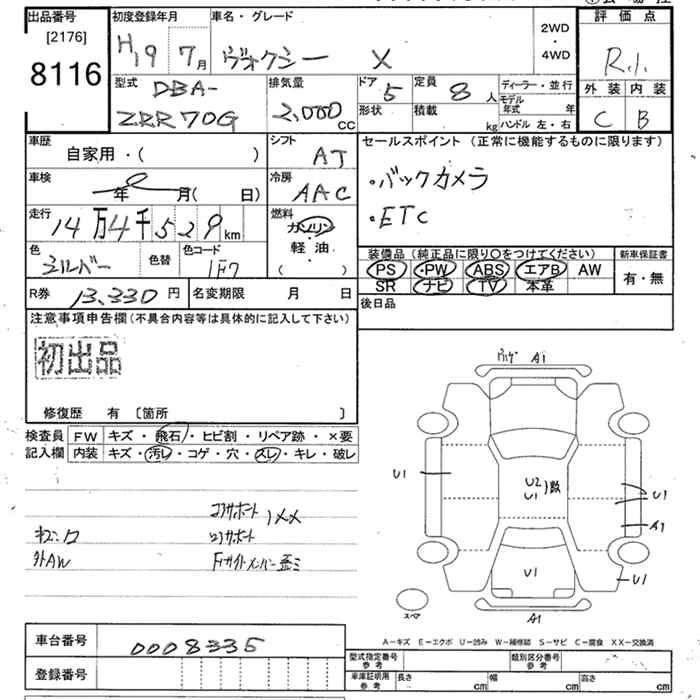 出品番号 初度登録年月 車名・グレード 2WD・4WD 評価点
[2176]
8116
H19 7月 ヴォクシー X R1
型式 DBA-ZRR70G 排気量 2,000 CC ドア 5 定員 8人 ディーラー・並行
形状 積載 kg モデル年式 年 ハンドル 左・右
外装 内装
C B
車歴 自家用・( ) シフト AT
車検 年 月( 日) 冷房 AAC
走行 14万4千529km 燃料 ガソリン・軽油 ( )
色 シルバー 色替 色コード 1F7
R券 13,330円 名変期限 月 日
セールスポイント (正常に機能するものに限ります)
・バックカメラ
・ETC
装備品(純正品に限り〇をつけてください) 新車保証書
PS・PW ABS エアB AW 有・無
SR ナビ TV 本革
後日品
注意事項申告欄(不具合内容等は具体的に記入して下さい)
初出品
修復歴 有 〔箇所 〕
検査員記入欄 FW キズ・飛石・ヒビ割・リペア跡・×要
内装 キズ・汚レ・コゲ・穴・スレ・キレ・破レ
コアサポート
外AW
A1
U1 U2 U1 U1
A1
U1 U1
スペア A1
A-キズ E-エクボ U-凹み W-補修跡 S-サビ C-腐食 XX-交換済
車台番号 0008335
登録番号
型式指定番号 参考 類別区分番号 参考
車庫証明用 参考 長さ cm 幅 cm 高さ cm